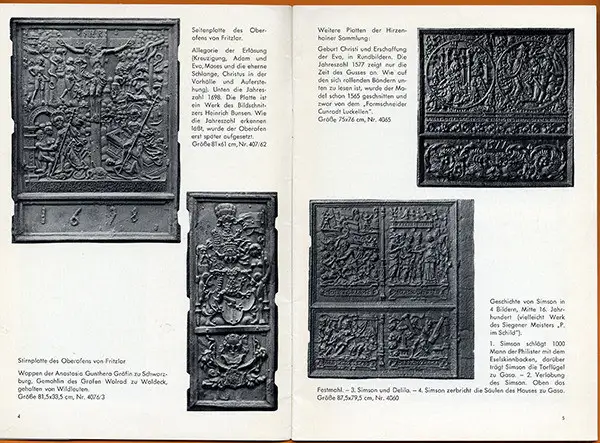 Seitenplatte des Ober-
ofens von Fritzlar.
Allegorie der Erlösung
(Kreuzigung, Adam und
Eva, Moses und die eherne
Schlange, Christus in der
Vorhölle und Auferste-
hung). Unten die Jahres-
zahl 1698. Die Platte ist
ein Werk des Bildschnit-
zers Heinrich Bunsen. Wie
die Jahreszahl erkennen
läßt, wurde der Oberofen
erst später aufgesetzt.
Größe 81x61 cm, Nr. 407/62
1698
Stirnplatte des Oberofens von Fritzlar
Wappen der Anastasia Gunthera Gräfin zu Schwarz-
burg, Gemahlin des Grafen Wolrad zu Waldeck,
gehalten von Wildleuten.
Größe 81,5x33,5 cm, Nr. 4076/3
4
Weitere Platten der Hirzen-
hainer Sammlung:
Geburt Christi und Erschaffung
der Eva, in Rundbildern. Die
Jahreszahl 1577 zeigt nur die
Zeit des Gusses an. Wie auf
den sich rollenden Bändern un-
ten zu lesen ist, wurde der Mo-
del schon 1565 geschnitten und
zwar von dem „Formschneider
Cunradt Luckellen".
Größe 75x76 cm, Nr. 4065
Geschichte von Simson in
4 Bildern, Mitte 16. Jahr-
hundert (vielleicht Werk
des Siegener Meisters „P.
im Schild").
1. Simson schlägt 1000
Mann der Philister mit dem
Eselskinnbacken, darüber
trägt Simson die Torflügel
zu Gasa. – 2. Verlobung
des Simson. Oben das
Festmahl. – 3. Simson und Delila. – 4. Simson zerbricht die Säulen des Hauses zu Gasa.
Größe 87,5x79,5 cm, Nr. 4060
5